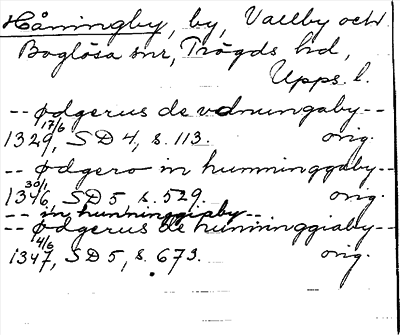 Håningby, by, Vallby och
Boglösa snr, Trögds hd,
Upps. l.
-- ødgerus de vdnungaby --
1329 17/6, SD 4, s. 113. orig.
-- ødgero in hunninggaby --
1346 30/1, SD 5 s. 529. orig.
-- in hunninggiaby --
-- ødgerus de hunninggiaby --
1347 4/6, SD 5, s. 673. orig.